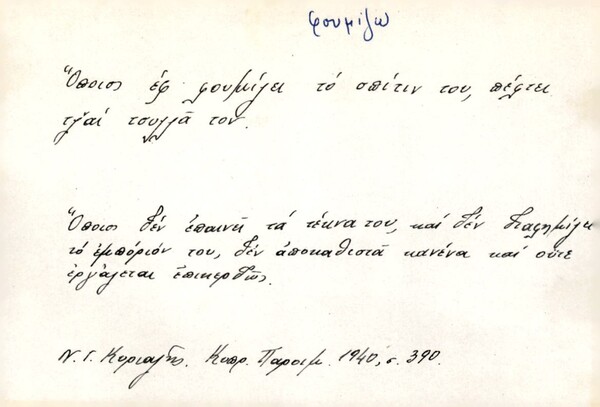 φουμίζω
Ὅποιος ἐφ φουμίζει τό σπίτιν του, πέφτει
τζ̌αί τσουλλᾶ τον.
Ὅποιος δέν ἐπαινεῖ τά τέκνα του, καί δέν διαφημίζει
τό ἐμπόριόν του, δέν ἀποκαθιστᾶ κανένα καί οὔτε
ἐργάζεται ἐπικερδῶς.
Ν. Γ. Κυριαζῆς. Κυπρ. Παροιμ. 1940, σ. 390.